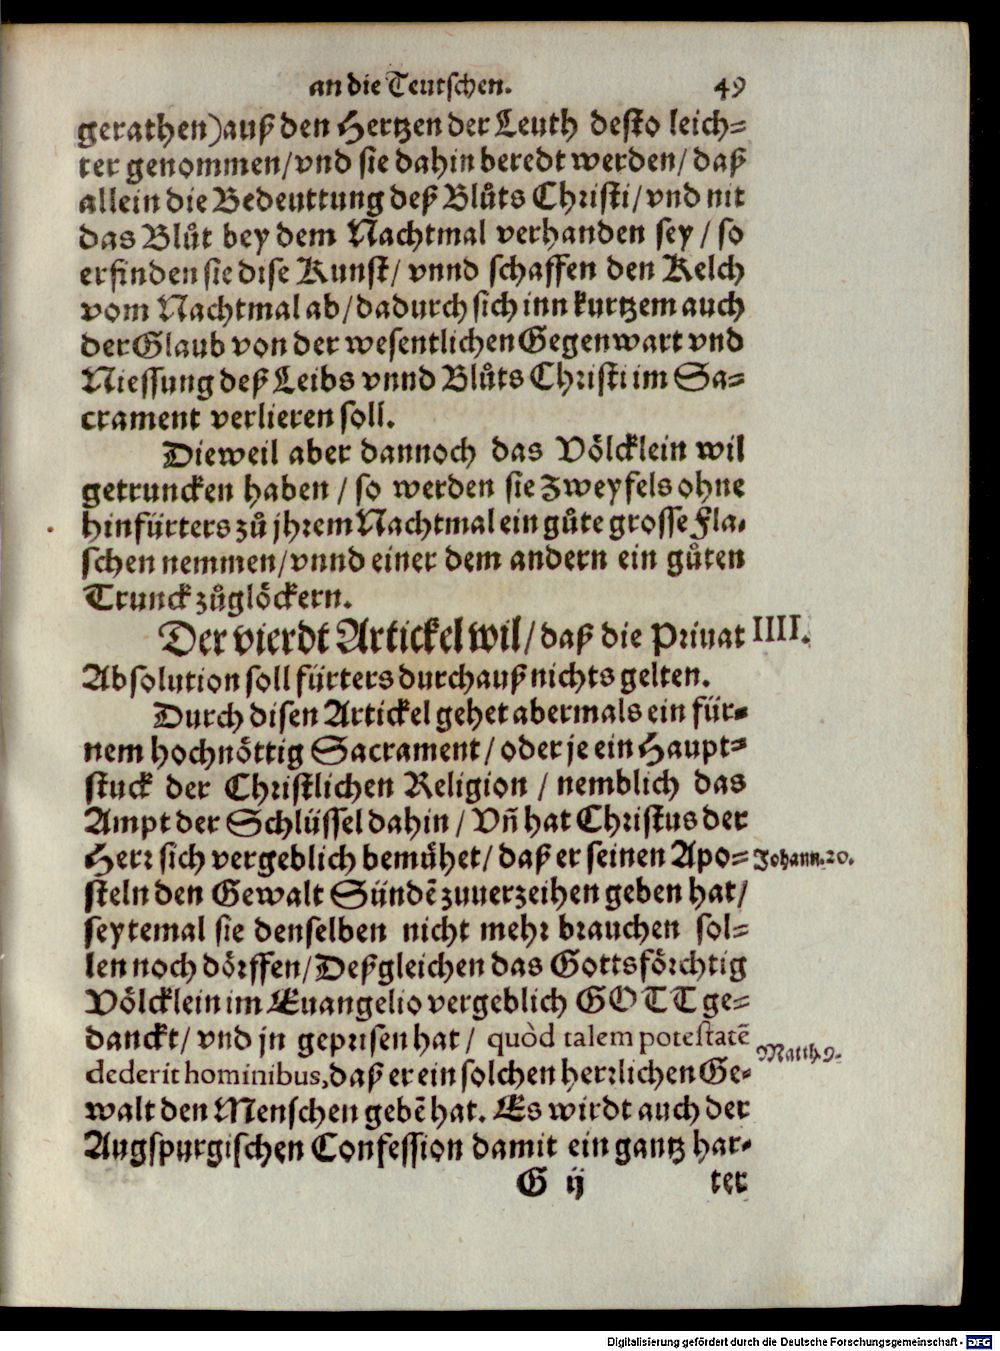 an die Teutschen. 49
gerathen) auß den Hertzen der Leuth desto leich=
ter genommen/ vnd sie dahin beredt werden/ daß
allein die Bedeuttung deß Blůts Christi/ vnd nit
das Blůt bey dem Nachtmal verhanden sey / so
erfinden sie dise Kunst/ vnnd schaffen den Kelch
vom Nachtmal ab/ dadurch sich inn kurtzem auch
der Glaub von der wesentlichen Gegenwart vnd
Niessung deß Leibs vnnd Blůts Christi im Sa=
crament verlieren soll.
Dieweil aber dannoch das Völcklein wil
getruncken haben / so werden sie Zweyfels ohne
hinfürters zů jhrem Nachtmal ein gůte grosse Fla=
schen nemmen/ vnnd einer dem andern ein gůten
Trunck zůglöckern.
Der vierdt Artickel wil/ daß die Priuat IIII.
Absolution soll fürters durchauß nichts gelten.
Durch disen Artickel gehet abermals ein für=
nem hochnöttig Sacrament/ oder je ein Haupt=
stuck der Christlichen Religion / nemblich das
Ampt der Schlüssel dahin / Vñ hat Christus der
Herr sich vergeblich bemühet/ daß er seinen Apo= Johann. 20.
steln den Gewalt Sündẽ zuuerzeihen geben hat/
seytemal sie denselben nicht mehr brauchen sol=
len noch dörffen/ Deßgleichen das Gottsförchtig
Völcklein im Euangelio vergeblich GOTT ge=
danckt/ vnd jn geprisen hat / quòd talem potestatẽ Matth. 9.
dederit hominibus, daß er ein solchen herrlichen Ge=
walt den Menschen gebẽ hat. Es wirdt auch der
Augspurgischen Confession damit ein gantz har=
G ij ter
Digitalisierung gefördert durch die Deutsche Forschungsgemeinschaft - DFG